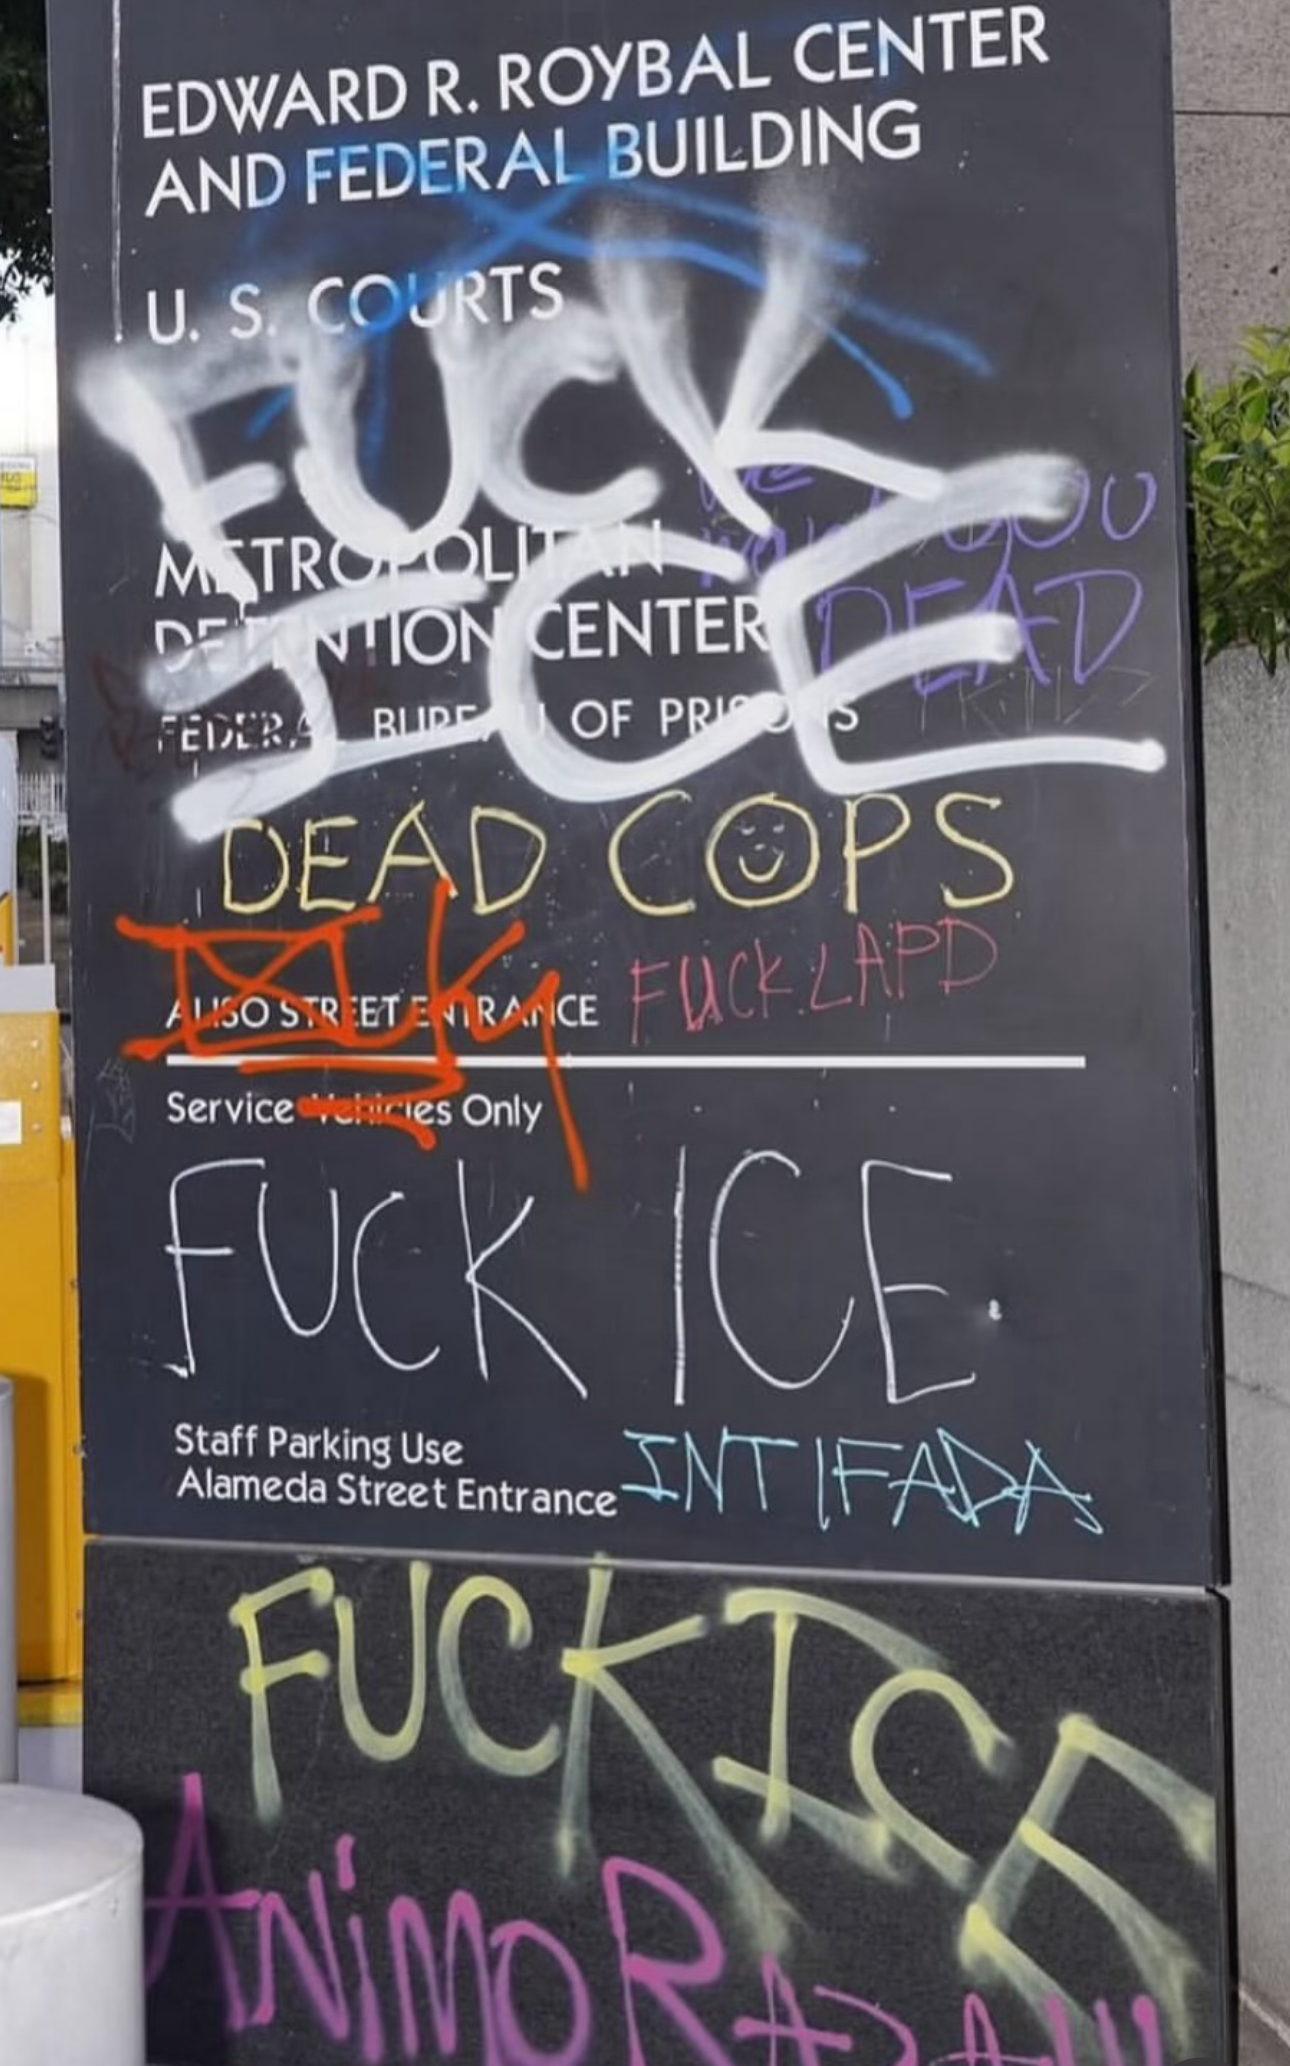 EDWARD R. ROYBAL CENTER
AND FEDERAL BUILDING
U. S. COURTS
FUCK
WE YOU
WANT
METROPOLITAN
DETENTION CENTER
DEAD
ICE
FEDERAL BUREAU OF PRISONS
DEAD COPS
ALISO STREET ENTRANCE
FUCK LAPD
Service Vehicles Only
FUCK ICE
Staff Parking Use
Alameda Street Entrance
INTIFADA
FUCK ICE
ANiMO